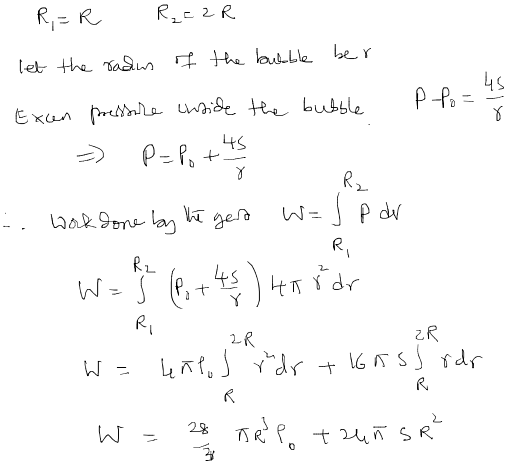 R₁ = R R₂ = 2R
let the radius of the bubble be r
Excess pressure inside the bubble. P - P₀ = 4S/r
⇒ P = P₀ + 4S/r
∴ Work done by the gas W = ∫_{R₁}^{R₂} P dv
W = ∫_{R₁}^{R₂} (P₀ + 4S/r) 4π r² dr
W = 4πP₀ ∫_{R}^{2R} r² dr + 16πS ∫_{R}^{2R} r dr
W = 28/3 πR³P₀ + 24πSR²